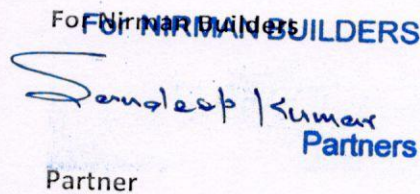 For Nirman Builders
For NIRMAN BUILDERS
Sandeep Kumar
Partners
Partner